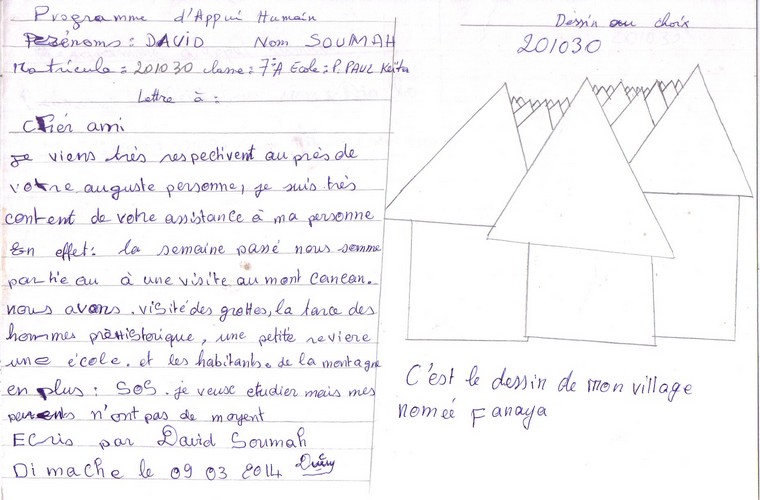 Programme d'Appui Humain
Prénoms : DAVID Nom SOUMAH
Matricule = 201030 classe = 7è A Ecole = P. PAUL Keita
Lettre à :
Chér ami
Je viens très respectivent au près de
votre auguste personne, je suis très
content de votre assistance à ma personne
En effet : la semaine passé nous somme
partie au à une visite au mont cancan.
nous avons. visité des grottes, la tarce des
hommes prèHistorique, une petite reviere
une école. et les habitants. de la montagne
en plus : SOS. je veuse etudier mais mes
parents n'ont pas de moyent
ECris par David Soumah
Dimache le 09 03 2014
Dessin au choix
201030
C'est le dessin de mon village
noméé Fanaya